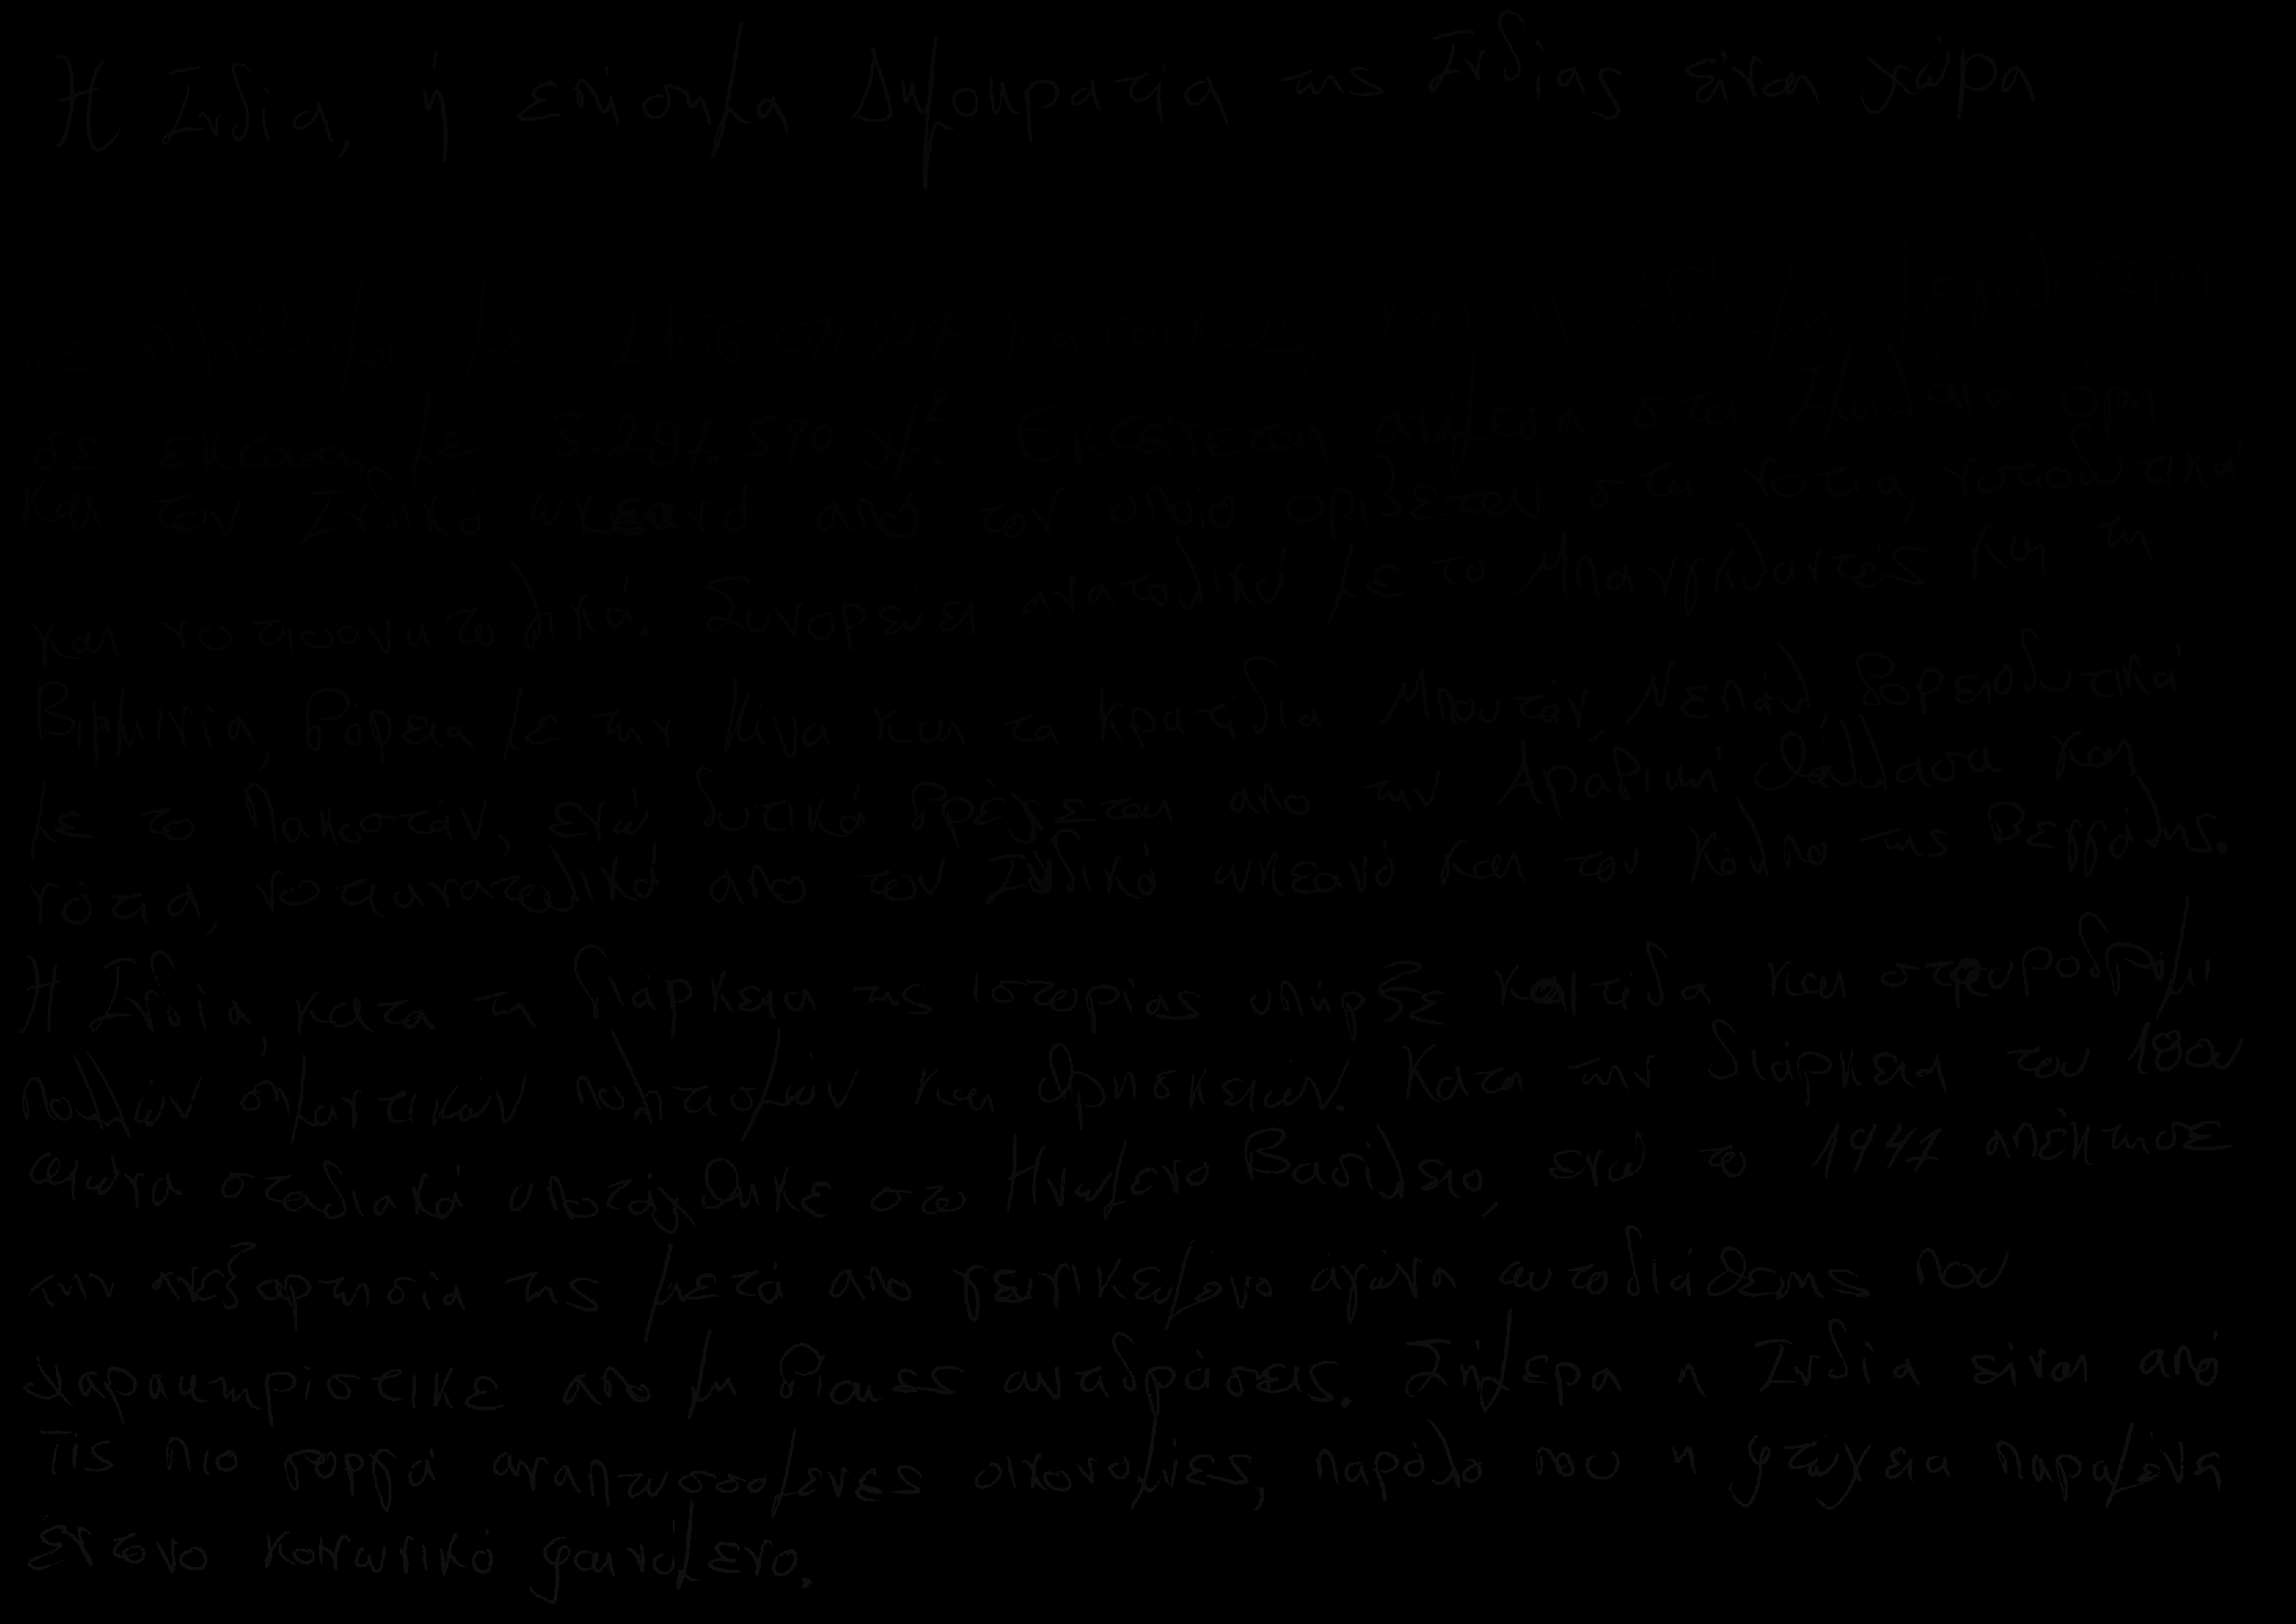 Η Ινδία, ή επίσημα Δημοκρατία της Ινδίας είναι χώρα
σε πληθυσμο, με 1.166.079.217 κατοίκους, και η έβδομη μεγαλύτερη
σε έκταση, με 3.287.590 χμ². Εκτείνεται ανάμεσα στα Ιμαλάια όρη
και τον Ινδικό ωκεανό από τον όποίο ορίζεται στα νοτια, νοτιοδυτικά
και νοτιοανατολικά. Συνορεύει ανατολικά με το Μπανγκλαντές και τη
Βιρμανία, βόρεια με την Κίνα και τα κρατίδια Μπουτάν, Νεπάλ, βορειοδυτικά
με το Πακιστάν, ενώ δυτικά βρέχεται απο την Αραβική θάλασσα και
νότια, νοτιανατολικά απο τον Ινδικό ωκεανό και τον Κόλπο της Βεγγάλης.
Η Ινδία, κατα τη διάρκεια της ιστορίας υπήρξε κοιτίδα και σταυροδρόμι
πολλών σημαντικών πολιτισμών και θρησκειών. Κατα την διάρκεια του 18ου
αιώνα σταδιακά υποτάχθηκε στο Ηνωμενο Βασίλειο, ενώ το 1947 απέκτησε
την ανεξαρτησία της μετά απο γενικευμένο αγώνα αυτοδιάθεσης που
χαρακτηρίστικε απο μη βίαιες αντιδράσεις. Σήμερα η Ινδία είναι από
τις πιο γοργά αναπτυσσομενες οικονομίες, παρόλο που η φτώχεια παραμένει
έντονο κοινωνικό φαινόμενο.